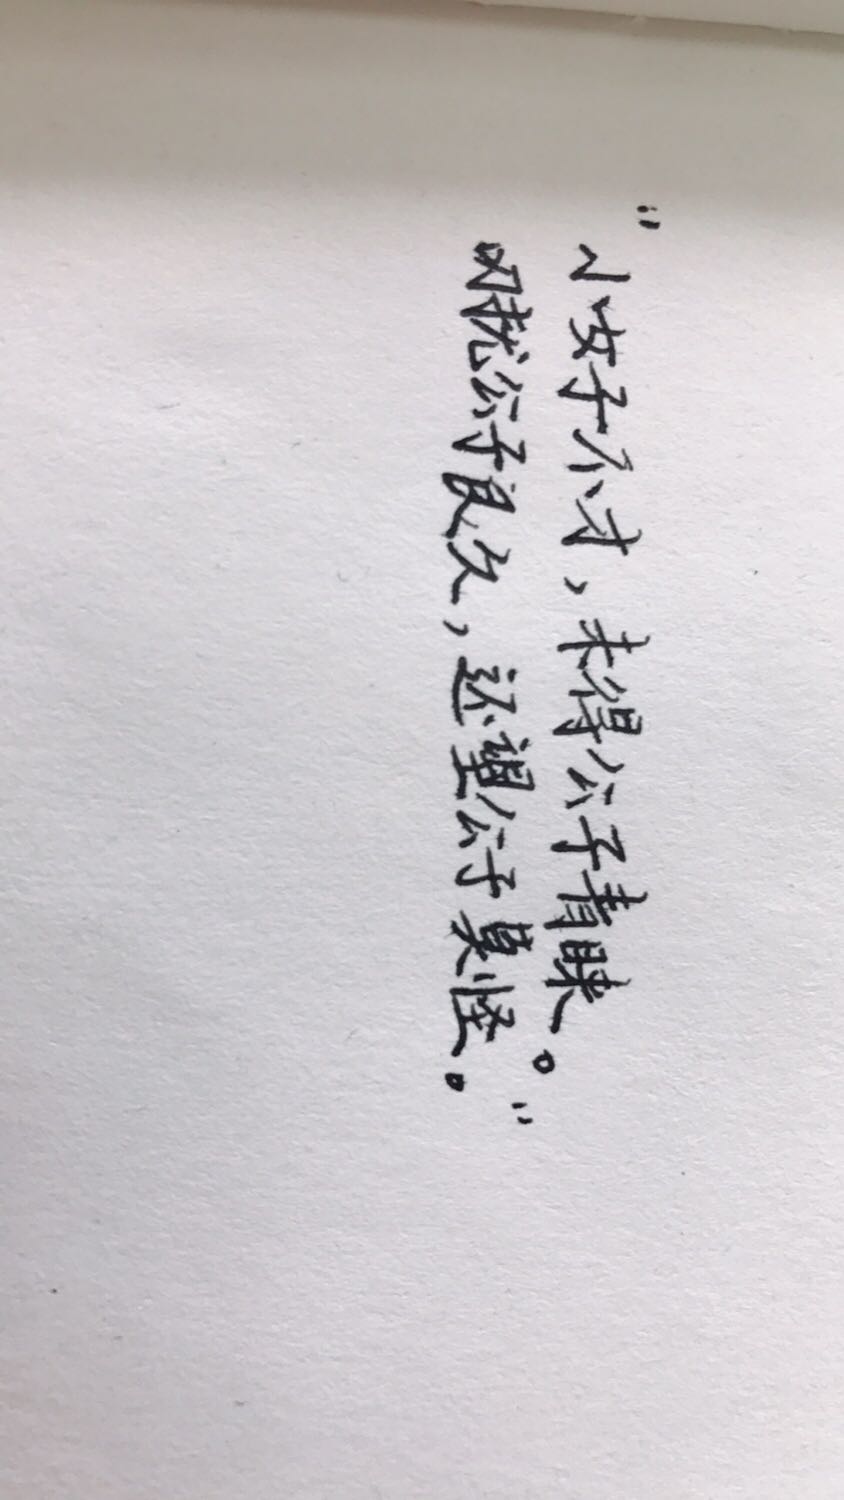 "小女子不才，未得公子青睐。
叨扰公子良久，还望公子莫怪。"